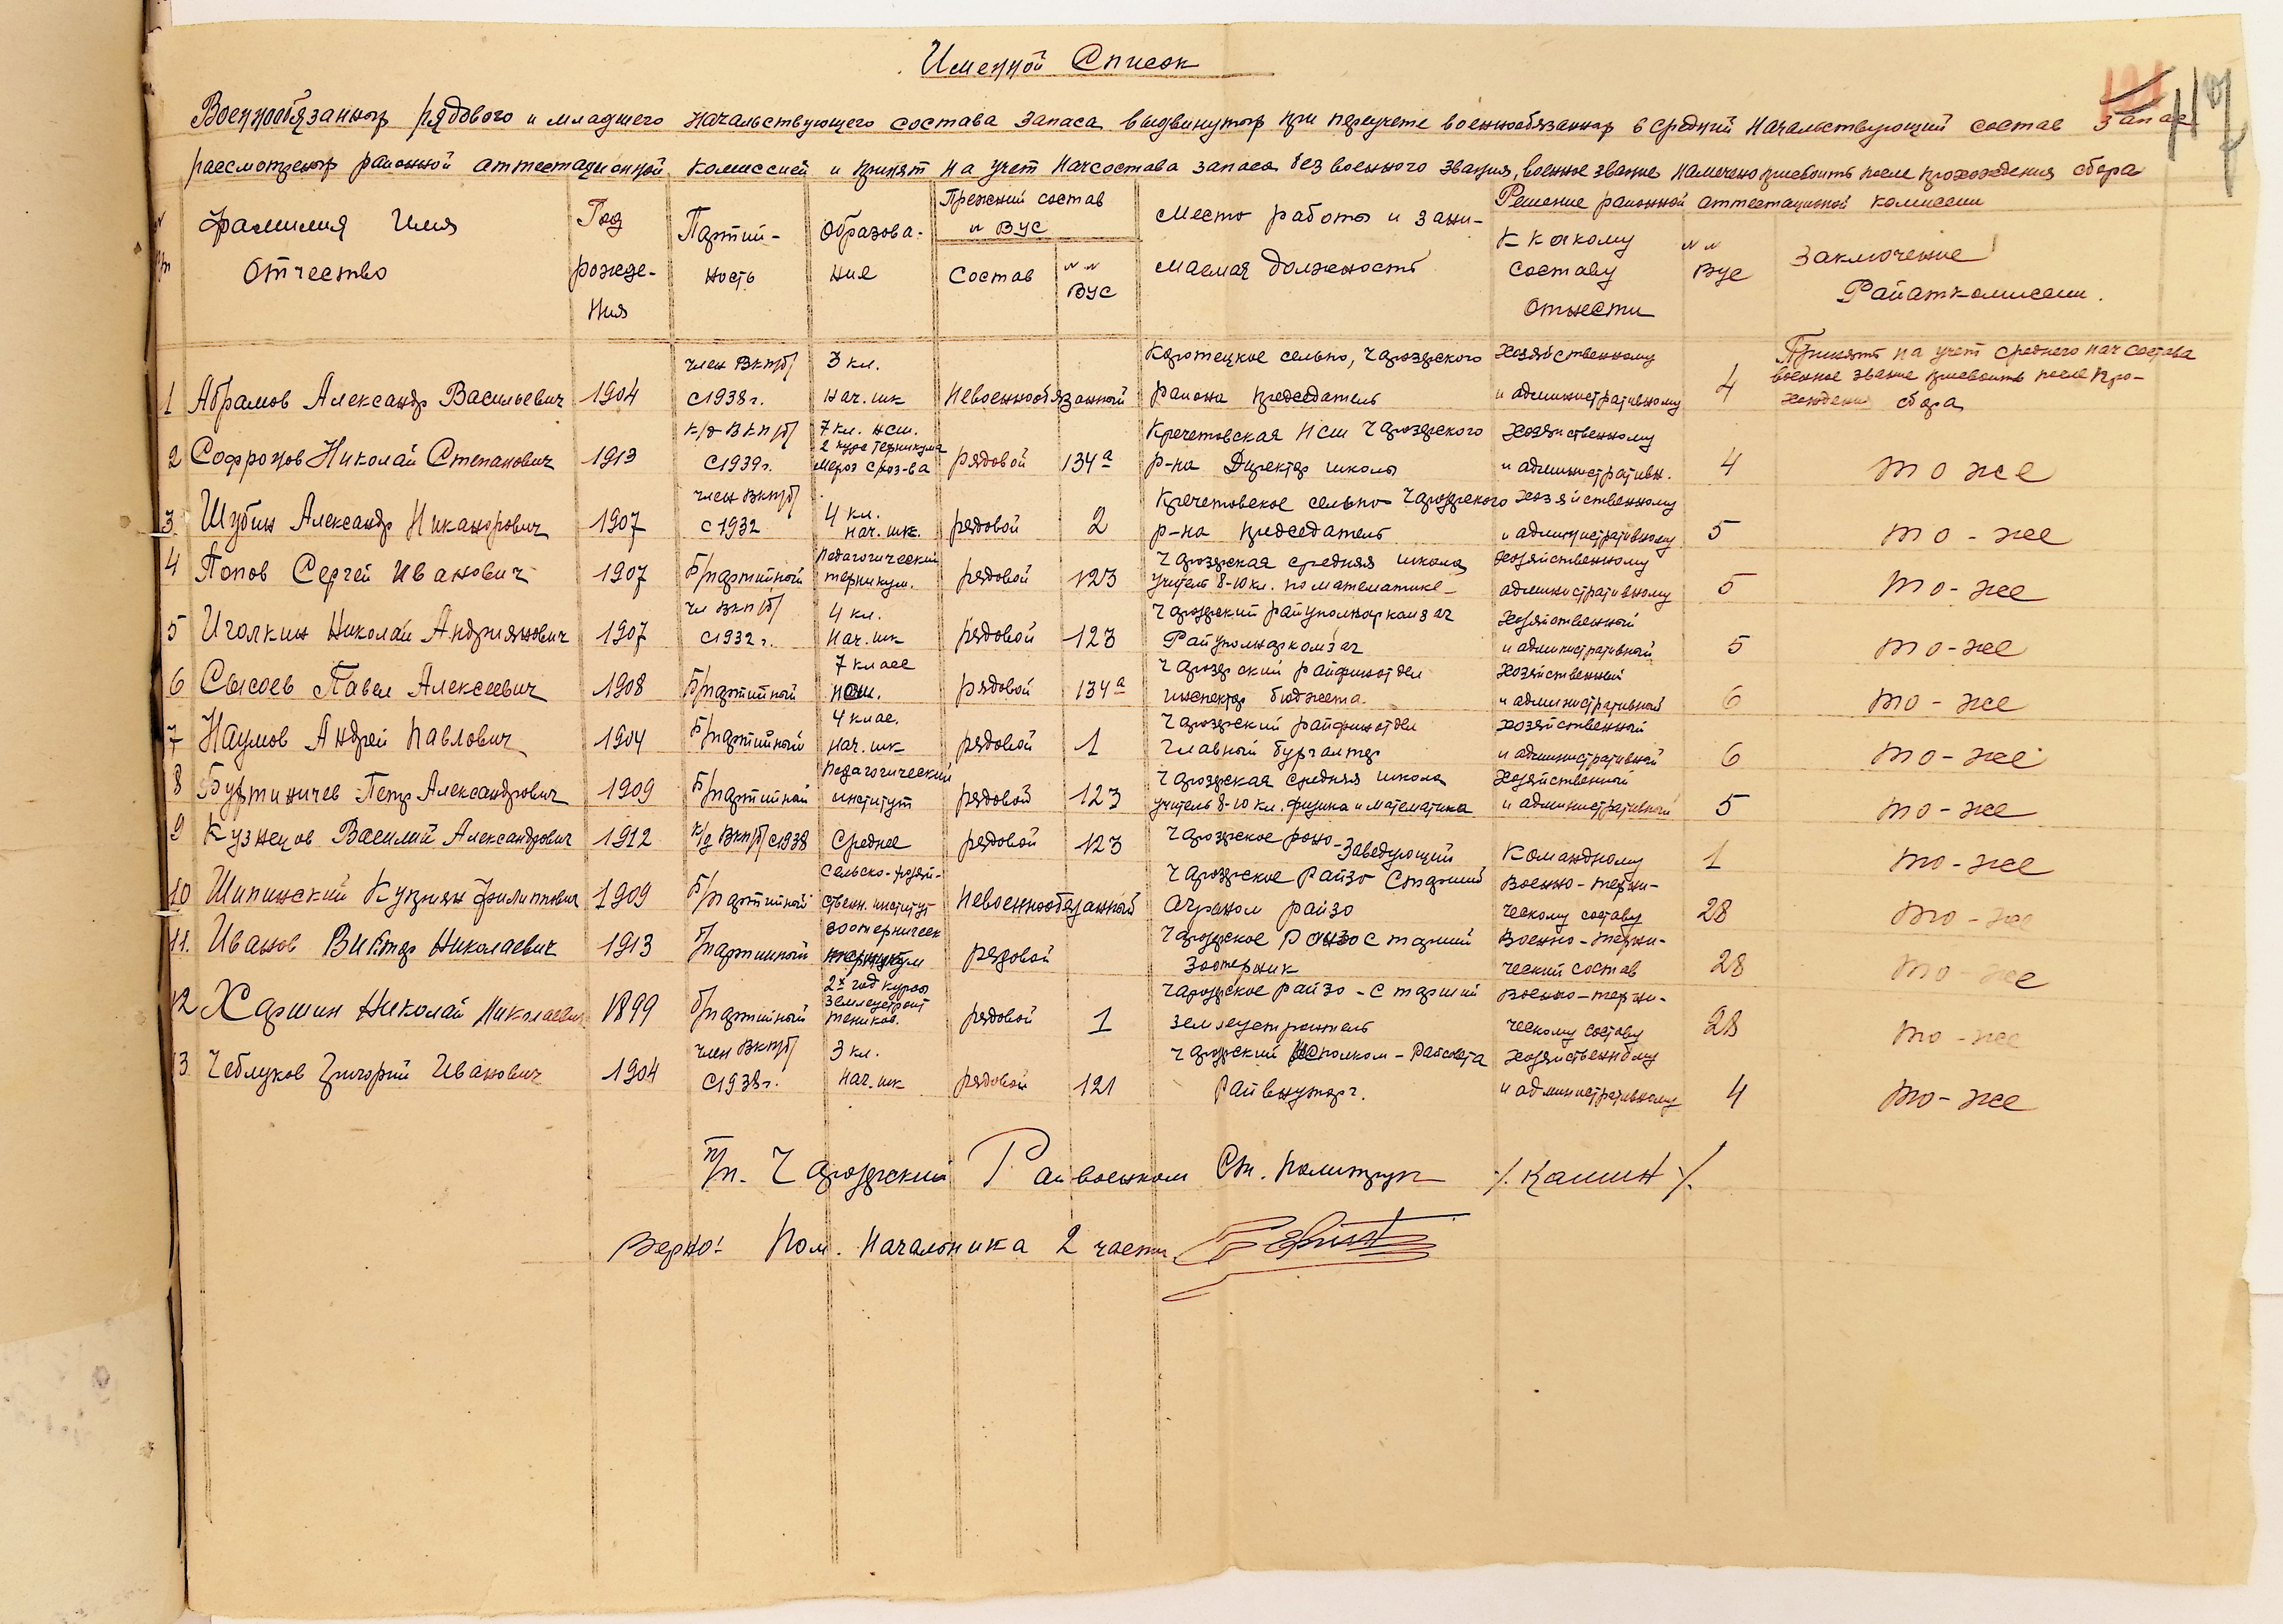 Именной Список
117
Военнообязанных рядового и младшего начальствующего состава запаса выдвинутых при переучете военнообязанных в средний начальствующий состав запаса
рассмотренных районной аттестационной комиссией и принят на учет начсостава запаса без военного звания, военное звание намечено присвоить после прохождения сбора
№ п/п
Фамилия Имя Отчество
Год рождения
Партийность
Образование
Прежний состав и ВУС
Состав
№№ ВУС
Место работы и занимаемая должность
Решение районной аттестационной комиссии
К какому составу отнести
№№ ВУС
Заключение Райатткомиссии.
1 Абрамов Александр Васильевич 1904 член ВКП/б/ с 1938 г. 3 кл. нач. шк Невоеннообязанный Коротецкое сельпо, Чарозерского района председатель хозяйственному и административному 4 Принять на учет среднего начсостава военное звание присвоить после прохождения сбора
2 Софронов Николай Степанович 1913 к/д ВКП/б/ с 1939 г. 7 кл. нсш. 2 курс техникума мероз с/хоз-ва рядовой 134а Кречетовская НСШ Чарозерского р-на Директор школы хозяйственному и административн. 4 то же
3 Шубин Александр Никандрович 1907 член ВКП/б/ с 1932 4 кл. нач. шк. рядовой 2 Кречетовское сельпо Чарозерского р-на председатель хозяйственному и административному 5 то-же
4 Попов Сергей Иванович 1907 Б/партийный педагогический техникум. рядовой 123 Чарозерская средняя школа учитель 8-10 кл. по математике хозяйственному административному 5 то-же
5 Иголкин Николай Андриянович 1907 чл ВКП/б/ с 1932 г. 4 кл. нач. шк рядовой 123 Чарозерский райуполнаркомзаг Райуполнаркомзаг хозяйственный и административный 5 то-же
6 Сысоев Павел Алексеевич 1908 Б/партийный 7 класс нсш. рядовой 134а Чарозерский райфинотдел инспектор бюджета. хозяйственный и административный 6 то-же
7 Наумов Андрей Павлович 1904 Б/партийный 4 клас. нач. шк рядовой 1 Чарозерский райфинотдел Главный бухгалтер хозяйственный и административный 6 то-же
8 Буртиничев Петр Александрович 1909 Б/партийный педагогический институт рядовой 123 Чарозерская средняя школа учитель 8-10 кл. физика и математика хозяйственный и административный 5 то-же
9 Кузнецов Василий Александрович 1912 к/д ВКП/б/ с 1938 Среднее рядовой 123 Чарозерское роно-Заведующий Командному 1 то-же
10 Шипинский Кузьмян Филиппович 1909 Б/партийный сельско-хозяйственн. институт Невоеннообязанный Чарозерское Райзо Старший Агроном райзо Военно-техническому составу 28 то-же
11. Иванов Виктор Николаевич 1913 б/партийный зоотехническ техникум рядовой Чарозерское Райзо старший Зоотехник Военно-технический состав 28 то-же
12 Харшин Николай Николаевич 1899 б/партийный 2х год курсы землеустроит техников. рядовой 1 Чарозерское райзо-старший землеустроитель Военно-техническому составу 28 то-же
13 Чеблуков Григорий Иванович 1904 член ВКП/б/ с 1938 г. 3 кл. нач. шк рядовой 121 Чарозерский исполком-Райсовета Райвнуторг. хозяйственному и административному 4 то-же
п/п. Чарозерский Райвоенком Ст. политрук /. Кашин /.
Верно: Пом. Начальника 2 части